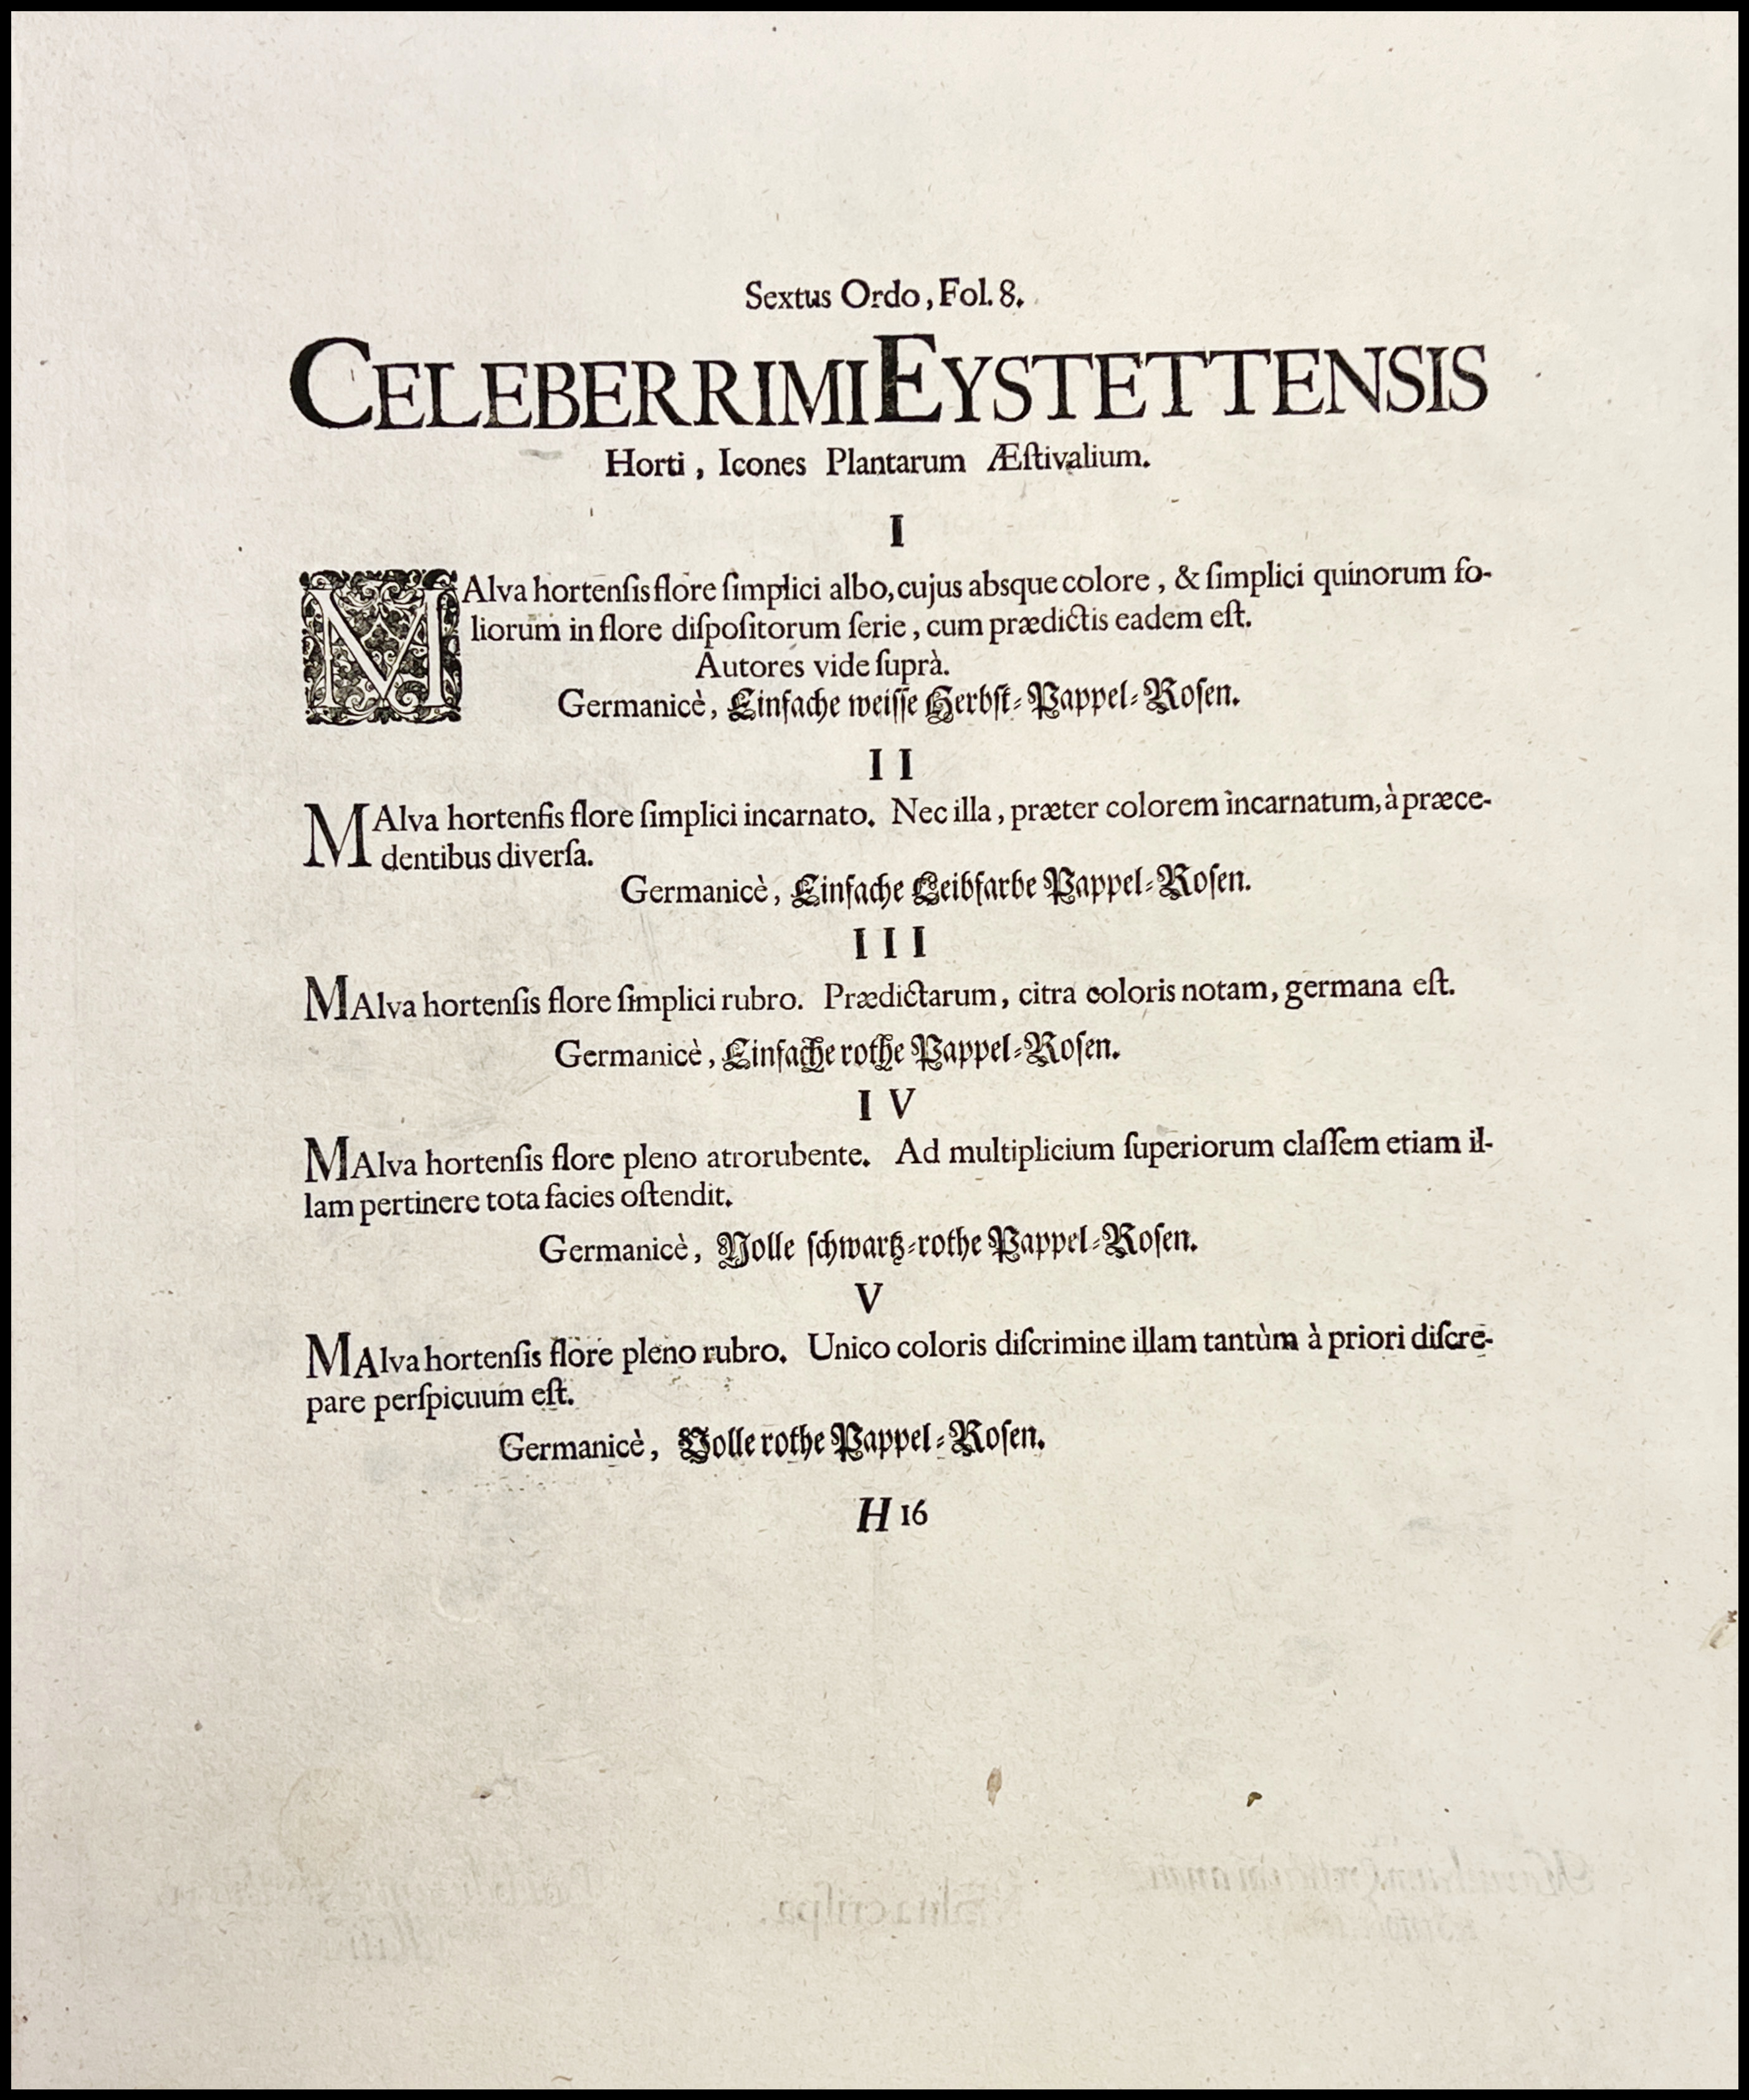 Sextus Ordo, Fol. 8.
CELEBERRIMI EYSTETTENSIS
Horti, Icones Plantarum Æſtivalium.
I
MAlva hortenſis flore ſimplici albo, cujus absque colore, & ſimplici quinorum fo-
liorum in flore diſpoſitorum ſerie, cum prædictis eadem eſt.
Autores vide ſuprà.
Germanicè, Einfache weiſſe Herbſt-Pappel-Roſen.
II
MAlva hortenſis flore ſimplici incarnato. Nec illa, præter colorem incarnatum, à præce-
dentibus diverſa.
Germanicè, Einfache Leibfarbe Pappel-Roſen.
III
MAlva hortenſis flore ſimplici rubro. Prædictarum, citra coloris notam, germana eſt.
Germanicè, Einfache rothe Pappel-Roſen.
IV
MAlva hortenſis flore pleno atrorubente. Ad multiplicium ſuperiorum claſſem etiam il-
lam pertinere tota facies oſtendit.
Germanicè, Volle ſchwartz-rothe Pappel-Roſen.
V
MAlva hortenſis flore pleno rubro. Unico coloris diſcrimine illam tantùm à priori diſcre-
pare perſpicuum eſt.
Germanicè, Volle rothe Pappel-Roſen.
H 16